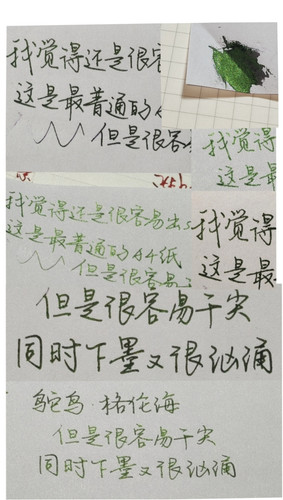 我觉得还是很容
这是最普通的A
但是很容易出s
我觉得
这是最
我觉得还是很容易出s
这是最普通的A4纸
但是很容易
我觉得
这是最
但是很容易干尖
同时下墨又很汹涌
鸵鸟·格伦海
但是很容易干尖
同时下墨又很汹涌